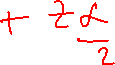 + 2 α/2